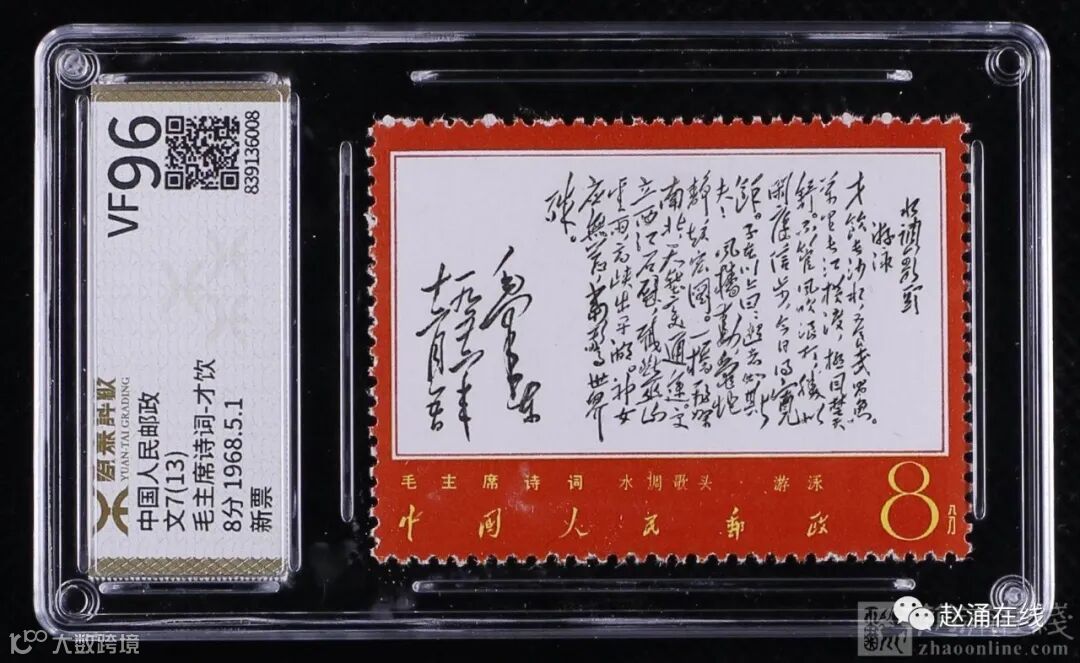 VF96
839136008
源泰評級
YUAN·TAI GRADING
中国人民邮政
文7(13)
毛主席诗词-才饮
8分 1968.5.1
新票
水調歌頭
游泳
才飲長沙水又食武昌魚。
萬里長江橫渡,極目楚天
舒。不管風吹浪打,勝似
閑庭信步,今日得寬
餘。子在川上曰:逝者如斯
夫!風檣動,龜蛇
靜,起宏圖。一橋飛架
南北,天塹變通途。更
立西江石壁,截斷巫山
雲雨,高峽出平湖。神女
應無恙,當驚世界
殊。
毛澤東
一九五六年
十二月五日
毛主席诗词 水調歌头·游泳
中國人民郵政
8分
大数跨境
赵涌在线
zhaoonline.com